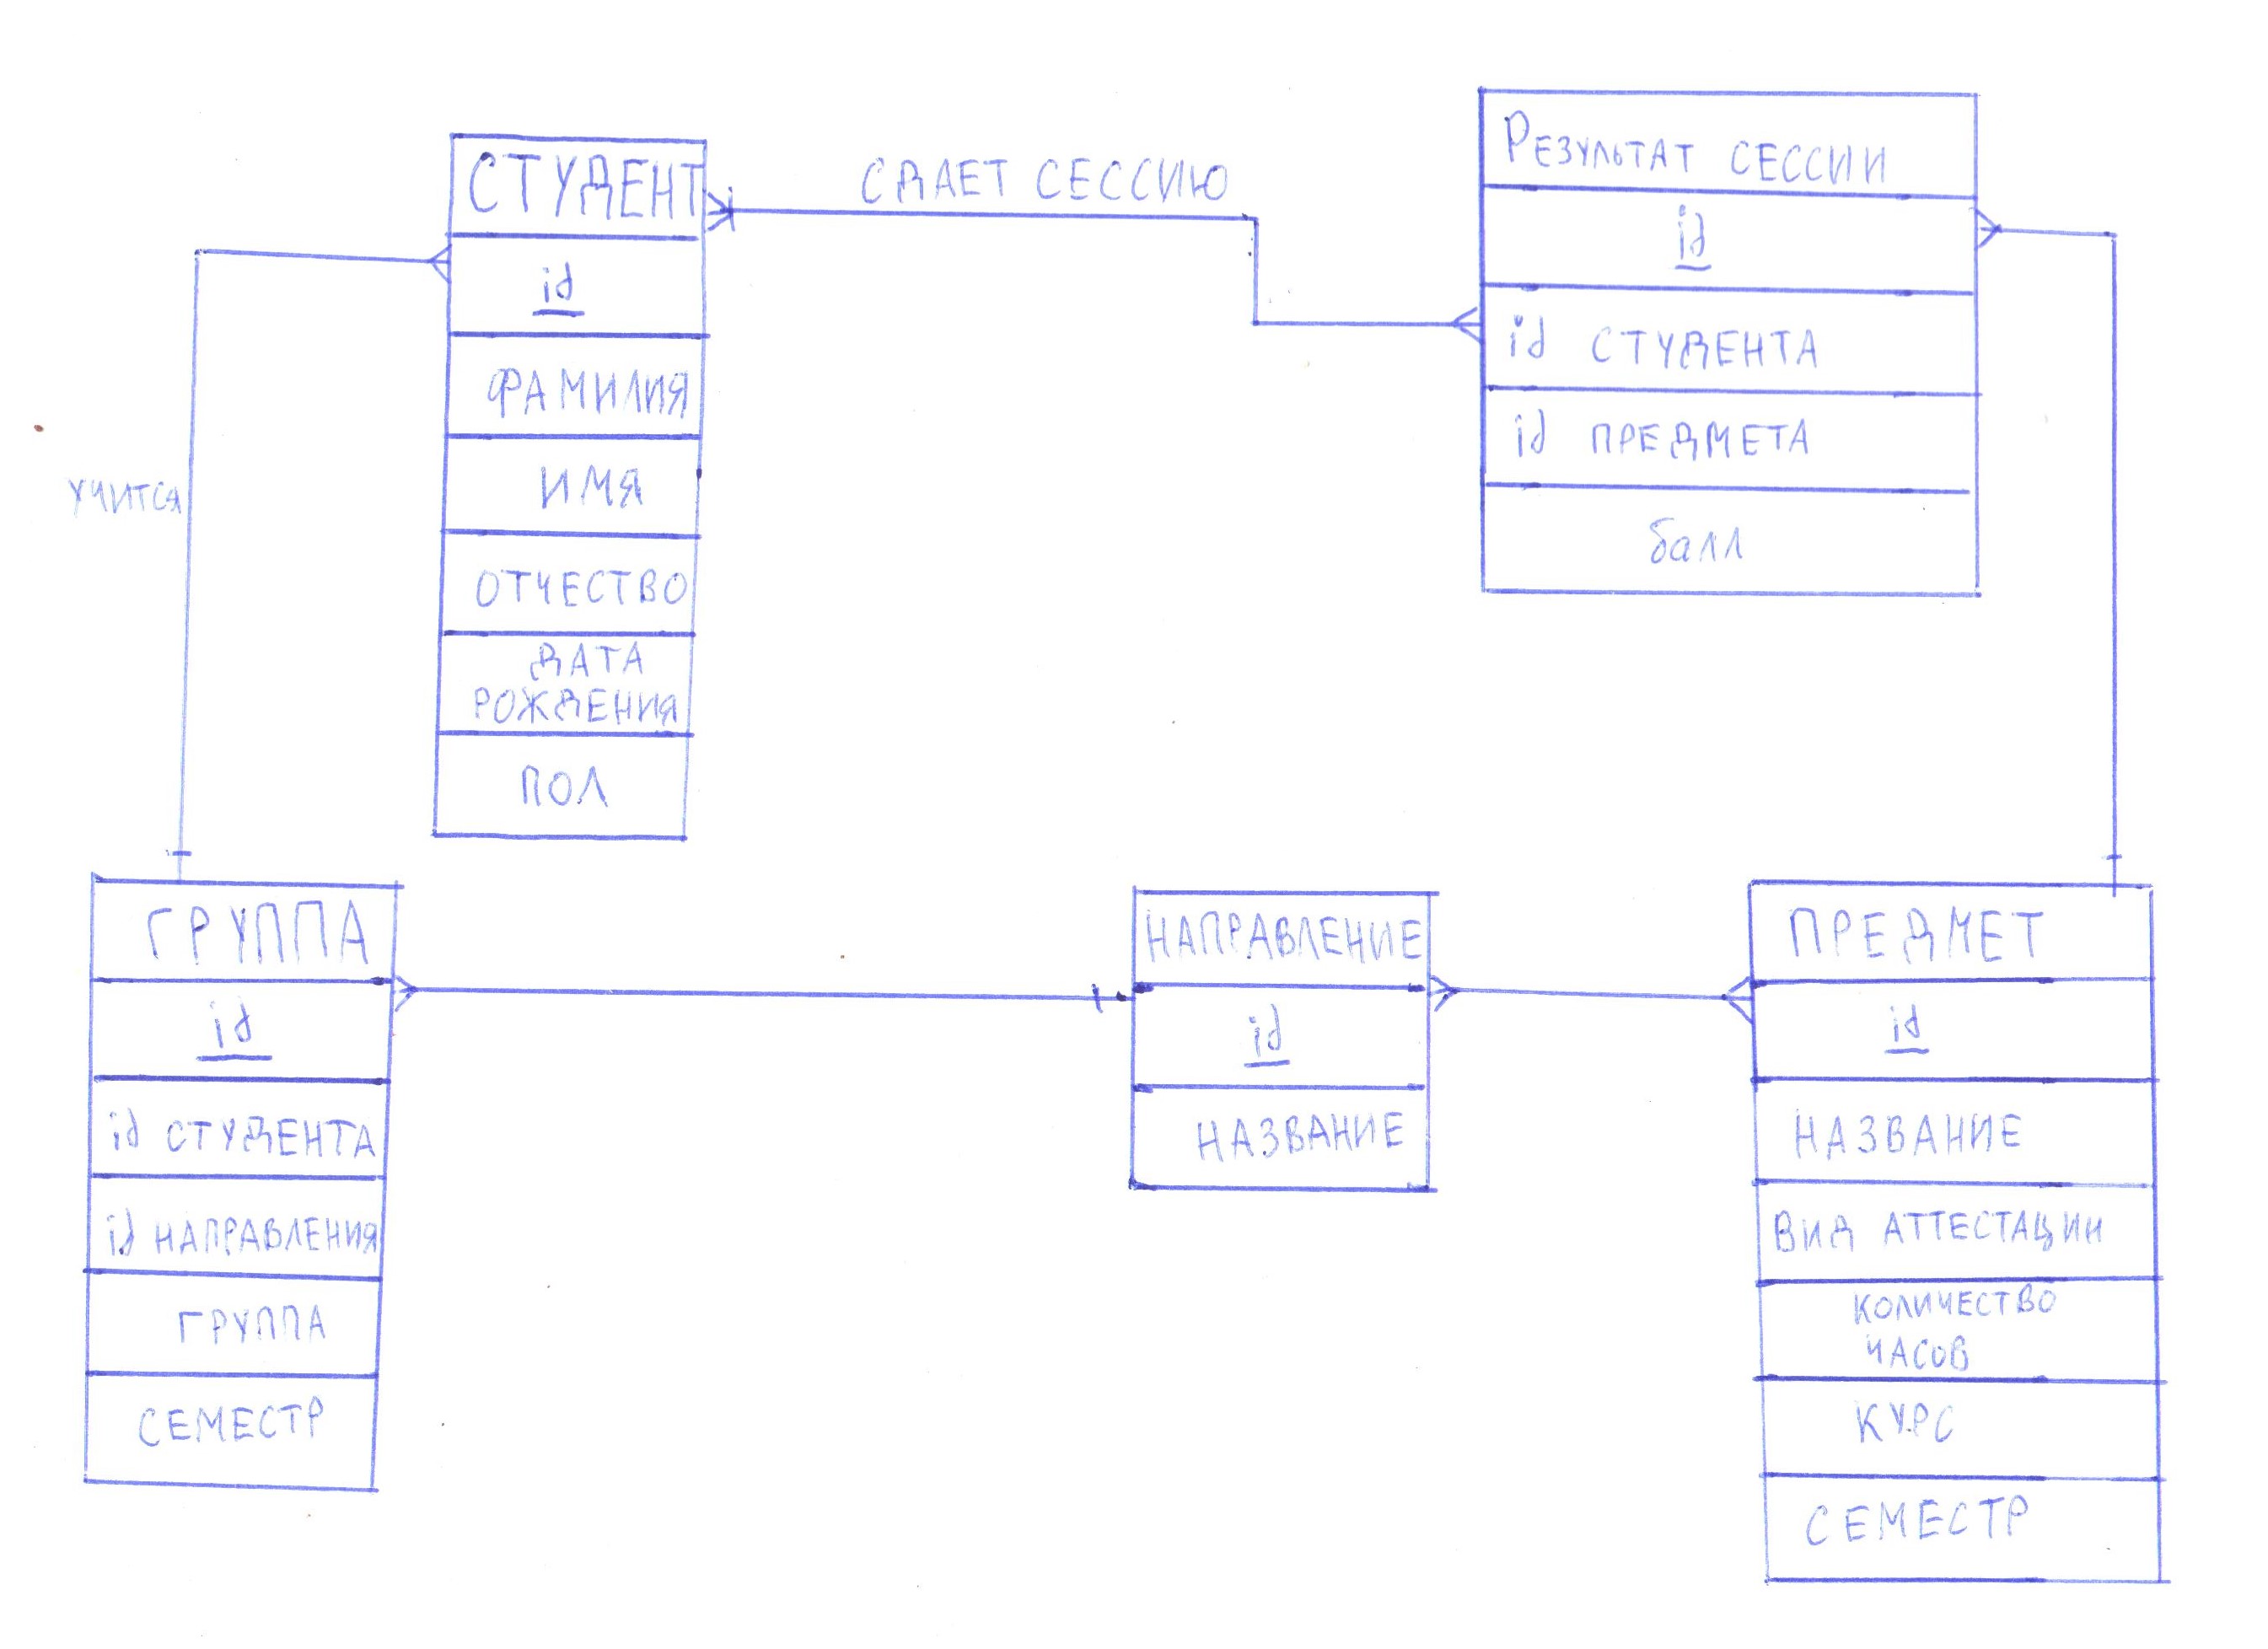 СТУДЕНТ
id
ФАМИЛИЯ
ИМЯ
ОТЧЕСТВО
ДАТА
РОЖДЕНИЯ
ПОЛ
СДАЕТ СЕССИЮ
РЕЗУЛЬТАТ СЕССИИ
id
id СТУДЕНТА
id ПРЕДМЕТА
балл
УЧИТСЯ
ГРУППА
id
id СТУДЕНТА
id НАПРАВЛЕНИЯ
ГРУППА
СЕМЕСТР
НАПРАВЛЕНИЕ
id
НАЗВАНИЕ
ПРЕДМЕТ
id
НАЗВАНИЕ
ВИД АТТЕСТАЦИИ
КОЛИЧЕСТВО
ЧАСОВ
КУРС
СЕМЕСТР